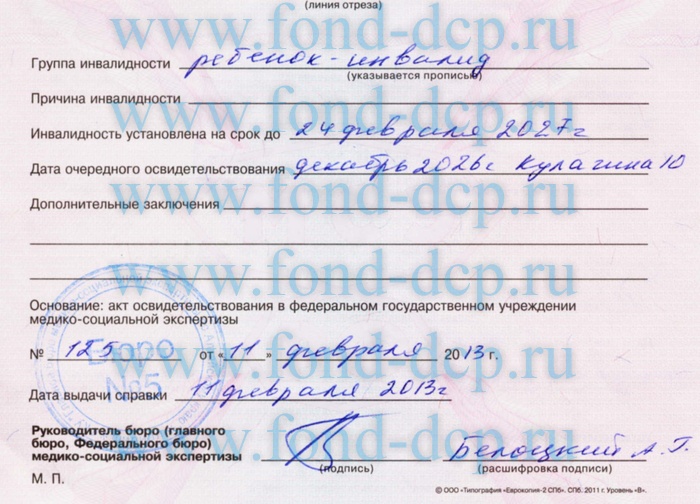 (линия отреза)
www.fond-dcp.ru
Группа инвалидности ребенок-инвалид
(указывается прописью)
Причина инвалидности
www.fond-dcp.ru
Инвалидность установлена на срок до 24 февраля 2027г
Дата очередного освидетельствования декабрь 2026г Кулагина 10
www.fond-dcp.ru
Дополнительные заключения
www.fond-dcp.ru
Основание: акт освидетельствования в федеральном государственном учреждении
медико-социальной экспертизы
www.fond-dcp.ru
№ 125 от «11» февраля 2013 г.
Бюро
№5
Дата выдачи справки 11 февраля 2013г
www.fond-dcp.ru
Руководитель бюро (главного
бюро, Федерального бюро)
медико-социальной экспертизы Белоцкий А. Г.
(подпись) (расшифровка подписи)
М. П.
© ООО «Типография «Еврокопия-2 СПб». СПб. 2011 г. Уровень «В».